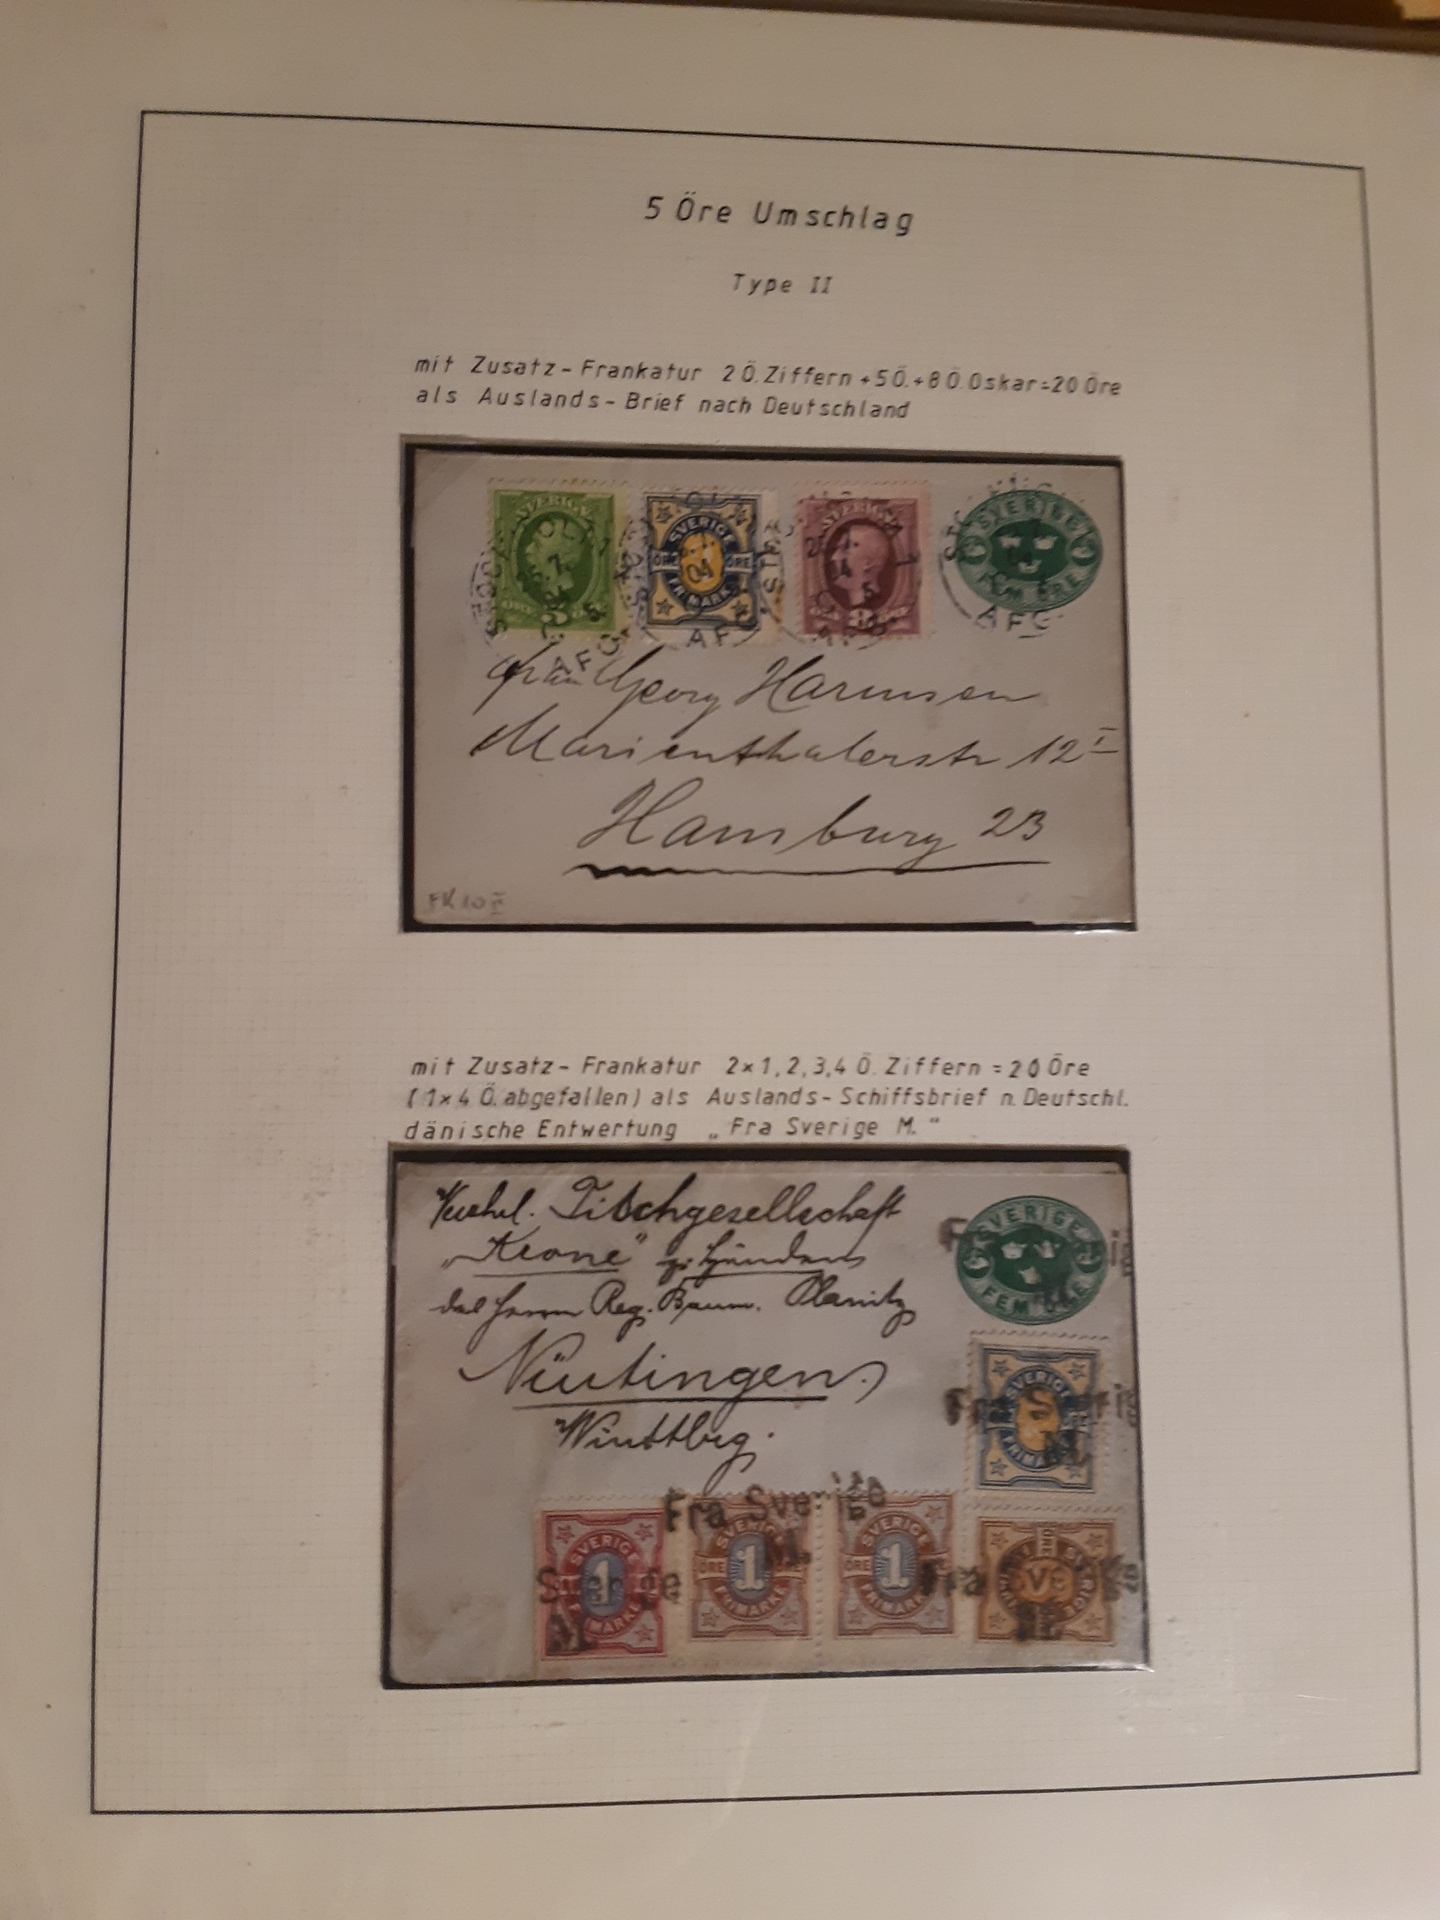 5 Öre Umschlag
Type II
mit Zusatz-Frankatur 2 Ö. Ziffern + 5 Ö. + 8 Ö. Oskar = 20 Öre
als Auslands-Brief nach Deutschland
SVERIGE
SVERIGE
ÖRE ÖRE
FRIMÄRKE
SVERIGE
SVERIGE
FEM ÖRE
Frau Georg Harmsen
Marienthalerstr 12 I
Hamburg 23
FK 10 II
mit Zusatz-Frankatur 2×1, 2, 3, 4 Ö. Ziffern = 20 Öre
(1×4 Ö. abgefallen) als Auslands-Schiffsbrief n. Deutschl.
dänische Entwertung „Fra Sverige M."
Tischgesellschaft
„Krone" z. Händen
des Herrn Reg. Baum.
SVERIGE
FEM ÖRE
Nürtingen.
SVERIGE
FRIMÄRKE
Fra Sverige
SVERIGE
1
FRIMÄRKE
SVERIGE
ÖRE 1
FRIMÄRKE
SVERIGE
ÖRE 1
FRIMÄRKE
ÖRE
SVERIGE